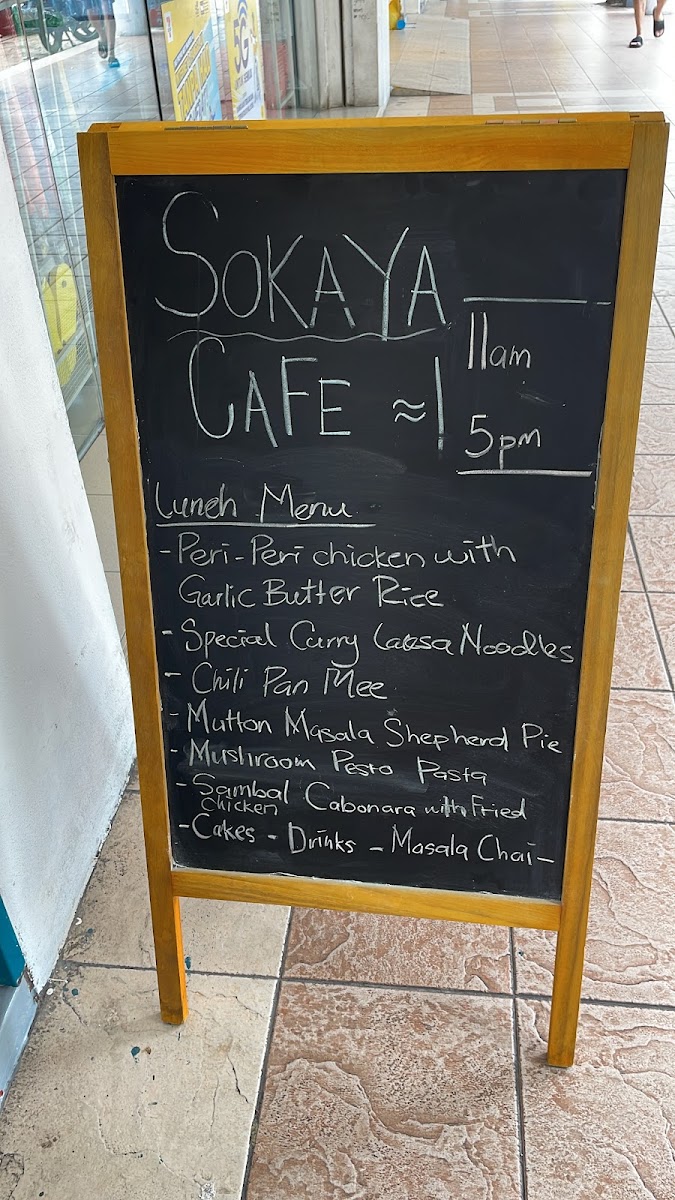 SOKAYA
CAFE ≈
11am
5pm
Lunch Menu
- Peri-Peri chicken with
Garlic Butter Rice
- Special Curry Laksa Noodles
- Chili Pan Mee
- Mutton Masala Shepherd Pie
- Mushroom Pesto Pasta
- Sambal Cabonara with Fried
Chicken
- Cakes - Drinks - Masala Chai -
5G